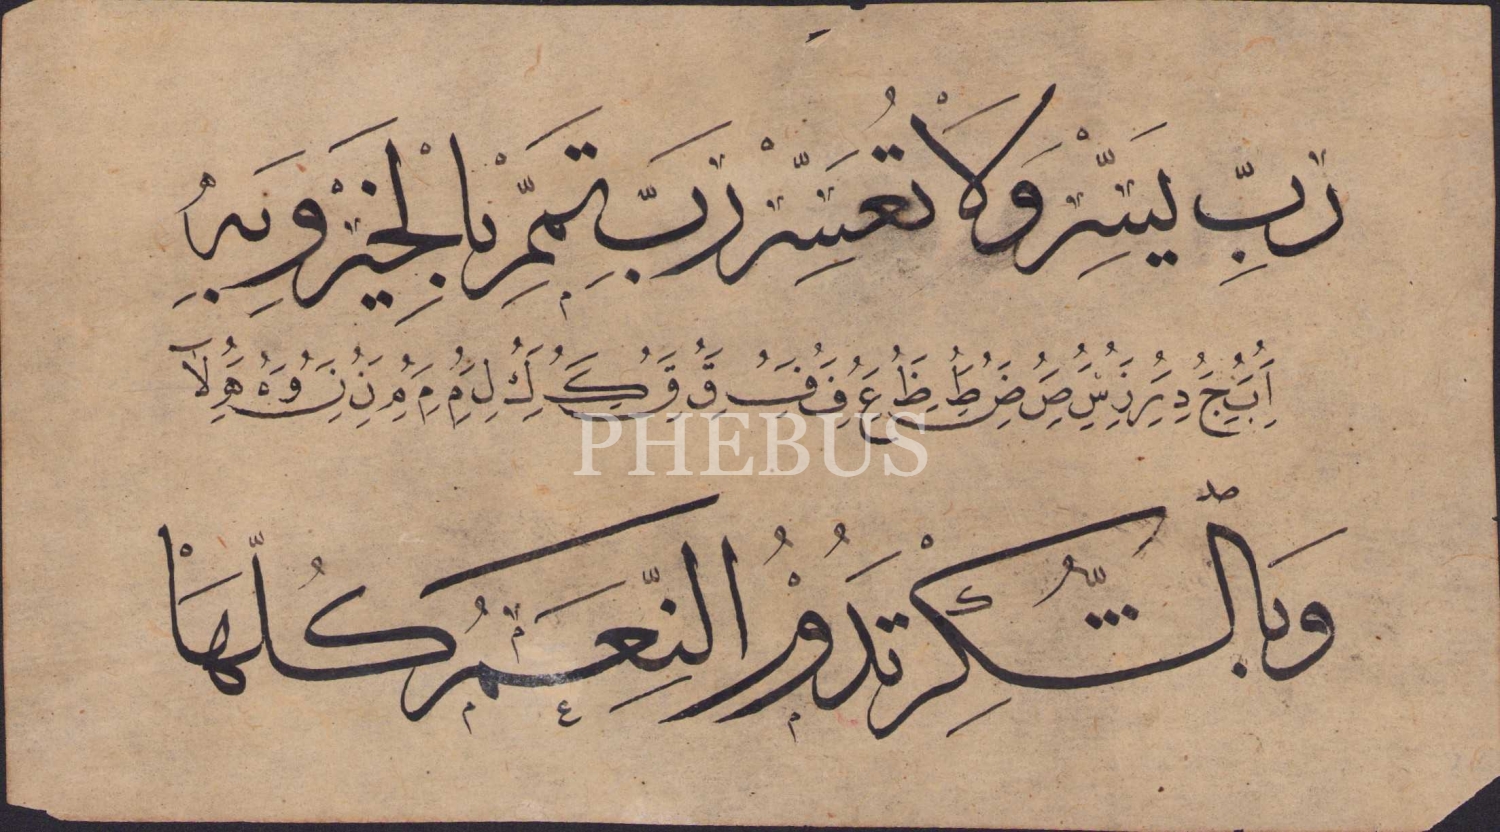 رَبِّ يَسِّرْ وَلَا تُعَسِّرْ رَبِّ تَمِّمْ بِالْخَيْرِ وَبِهِ
ا ب ج د ر ز س ص ض ط ظ ع ف ف ق ق ك ك ل م م م ن ن و ه ه لا
وَبِالشُّكْرِ تَدُورُ النِّعَمُ كُلُّهَا
PHEBUS